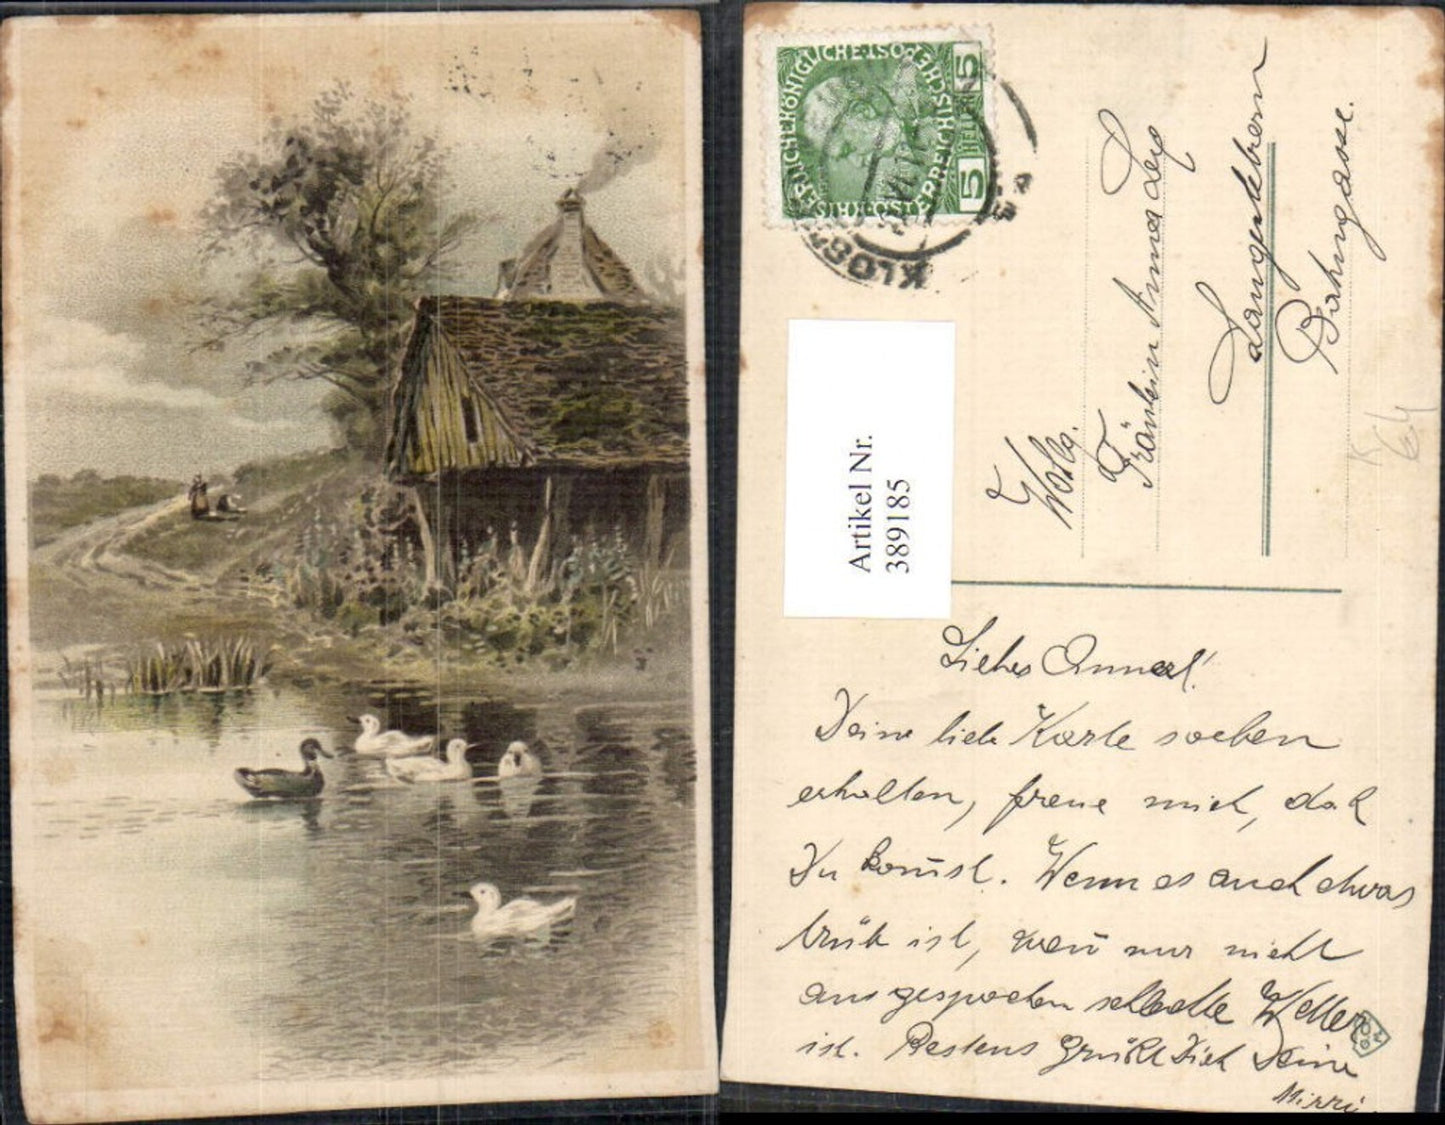 KAIS. KÖNIGLICHE ÖSTERREICHISCHE POST
5 HELLER 5
KLOS
Artikel Nr.
389185
Wohlg.
Fräulein Anna
Langenlebarn
Bahngasse.
Liebes Annerl!
Deine liebe Karte soeben
erhalten, freue mich, daß
Du komst. Wenn es auch etwas
trüb ist, wen nur nicht
ausgesprochen schlechte Wetter
ist. Bestens grüßt Dich Deine
Mizzi.